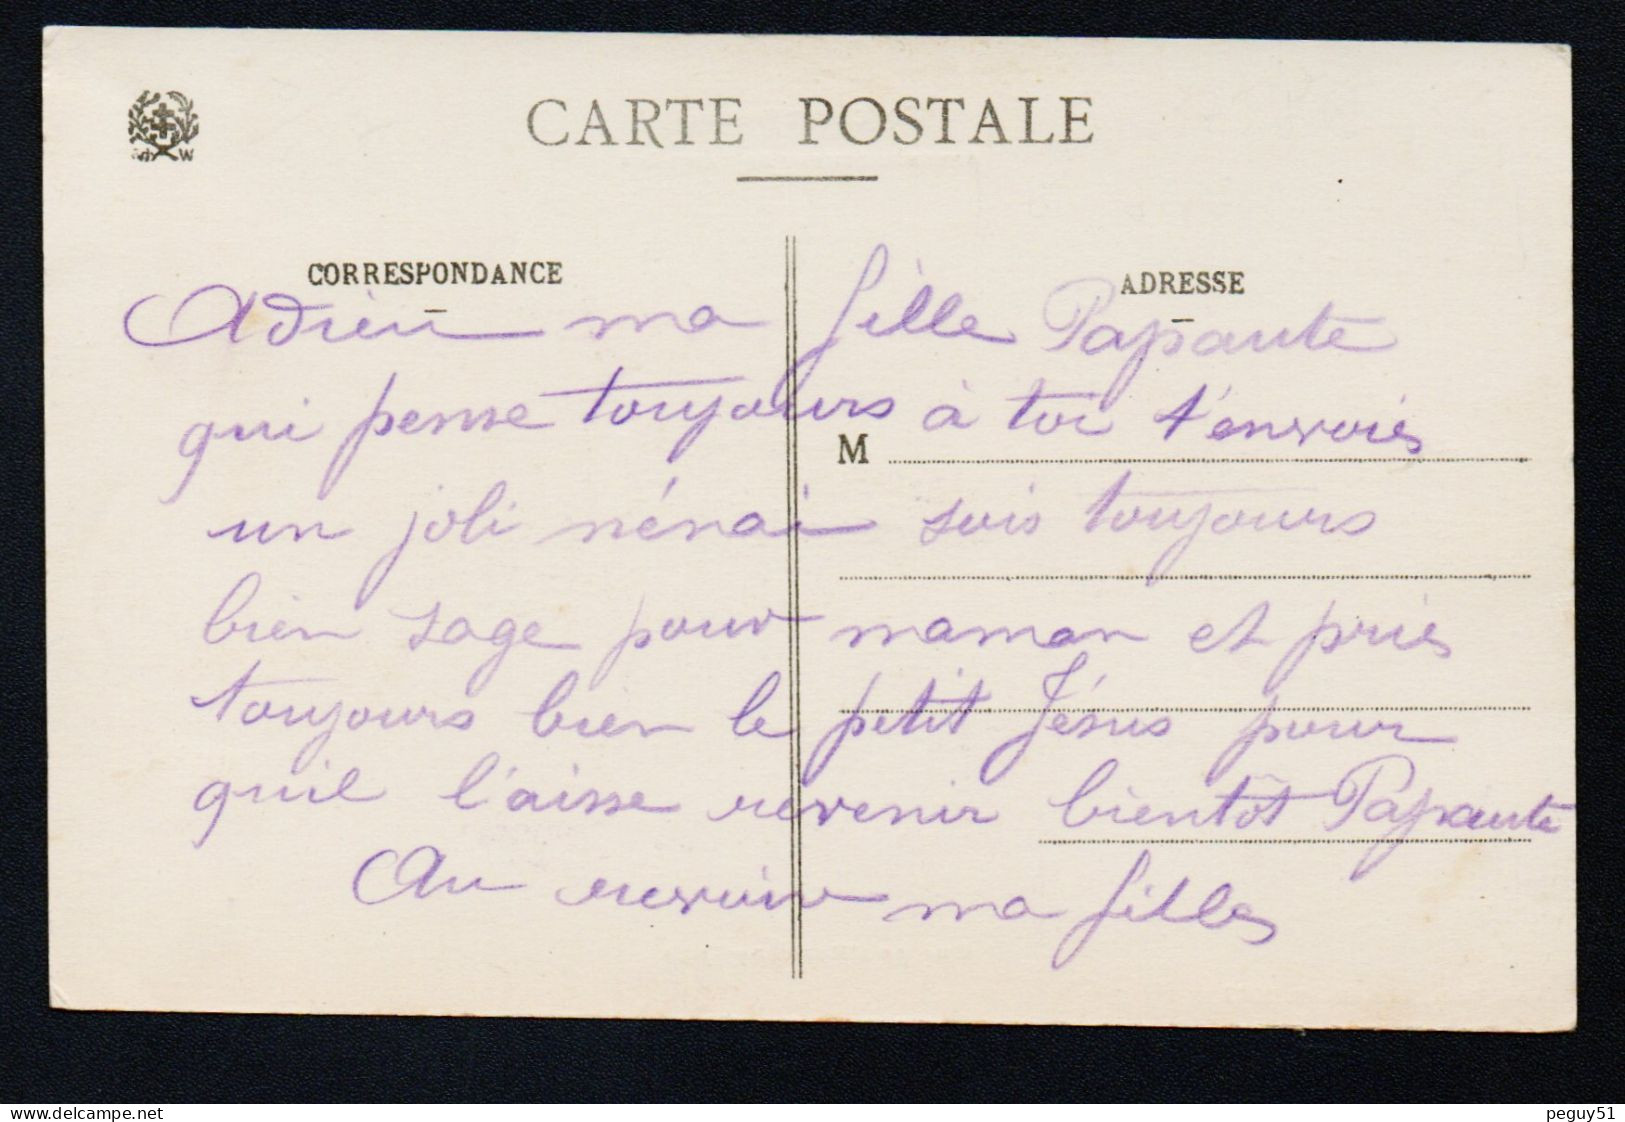 CARTE POSTALE
CORRESPONDANCE
ADRESSE
Adieu ma fille Papaute
qui pense toujours à toi t'envois
M
un joli nénai sois toujours
bien sage pour maman et pries
toujours bien le petit Jésus pour
quil l'aisse revenir bientôt Papaute
Au revoir ma filles
W
delcampe.net
peguy51